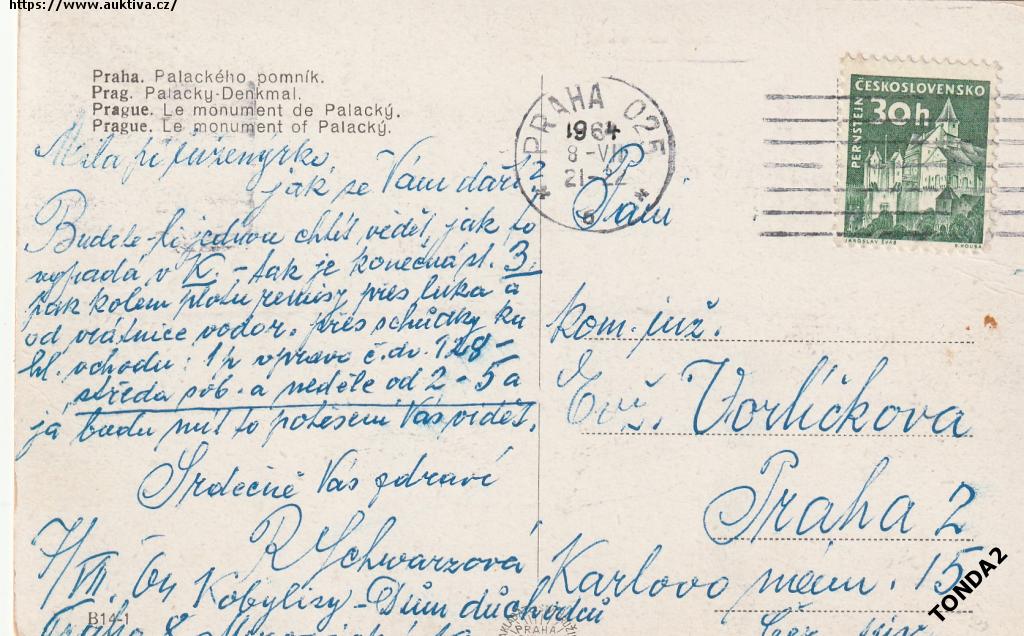 https://www.auktiva.cz/
Praha. Palackého pomník.
Prag. Palacky-Denkmal.
Prague. Le monument de Palacký.
Prague. Le monument of Palacký.
Milá
jak se Vám daří?
Budete-li jednou chtít vědět, jak to
vypadá v K. - tak je konečná st. 3.
pak kolem plotu remisy přes luka a
od vrátnice vodor. přes schůdky ku
hl. vchodu: 1p vpravo č.dv. 128 -
středa sob. a neděle od 2 - 5 a
já budu mít to potěšení Vás vidět.
Srdečně Vás zdraví
R Schwarzová
7/VII. 64 Kobylisy - Dům důchodců
Praha 8
B14-1
PRAHA 025
1964
8-VII
21-22
6
ČESKOSLOVENSKO
30h
PERNŠTEJN
JAROSLAV ŠVÁB
Paní
kom. inž.
Vorlíčková
Praha 2
Karlovo nám. 15
PRAHA
TONDA2